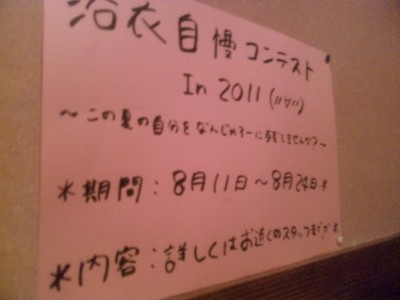 浴衣自慢コンテスト
In 2011 (〃∀〃)
〜この夏の自分をなんじゃろーに残しませんか?〜
*期間:8月11日〜8月24日*
*内容:詳しくはお近くのスタッフまで*